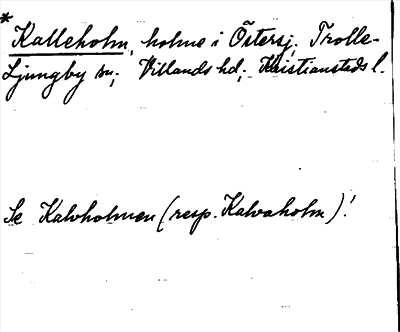 * Kalleholm, holme i Östersj. Trolle-
Ljungby sn; Villands hd; Kristianstads l.
Se Kalvholmen (resp. Kalvaholm)!